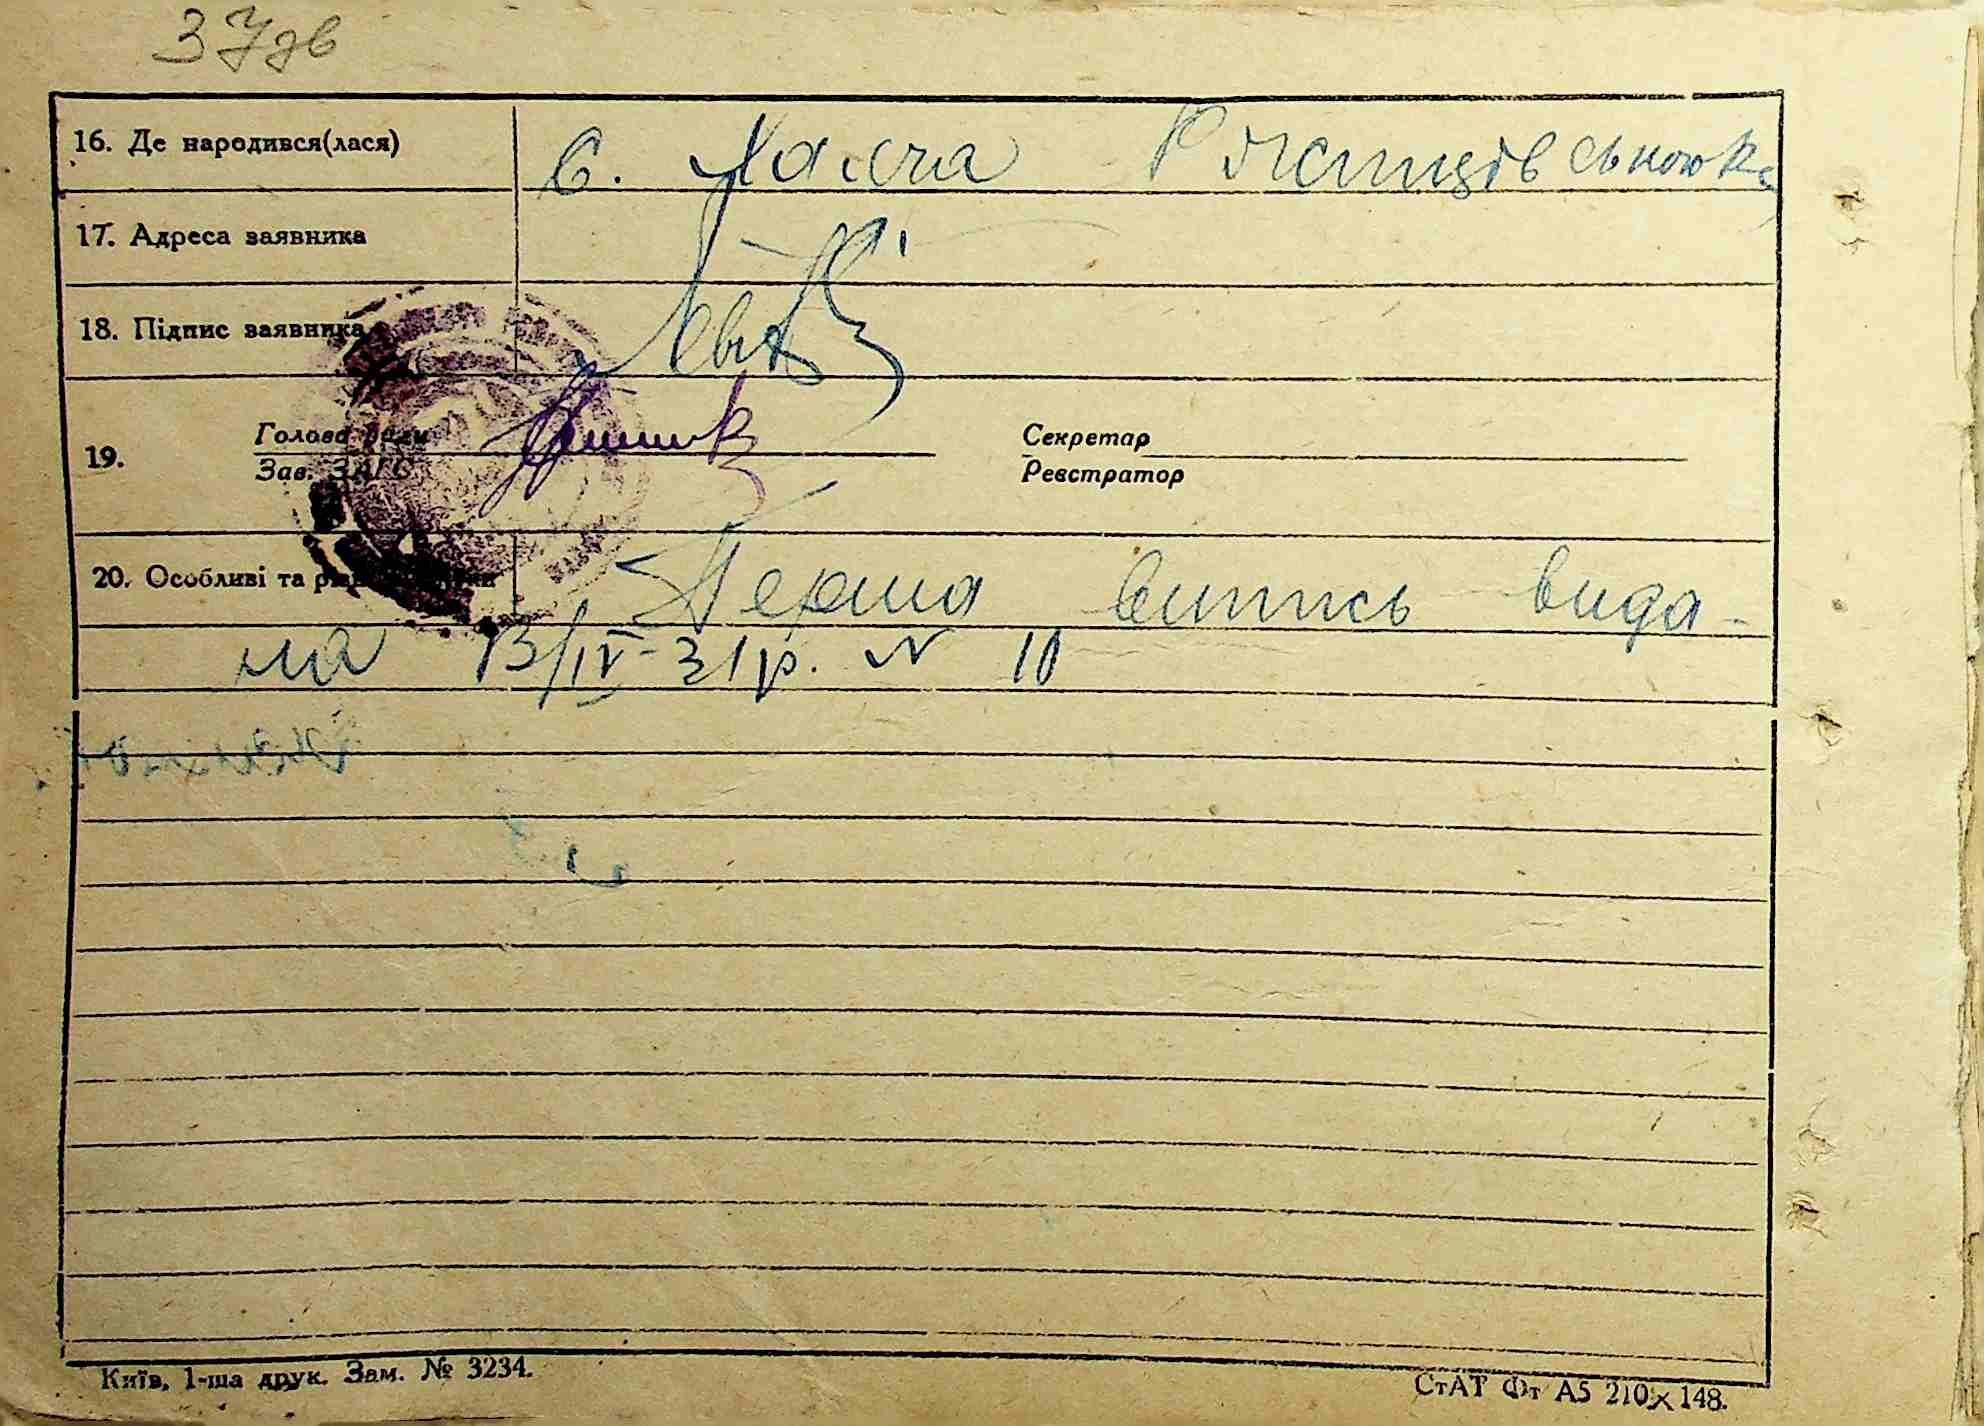 37зв
16. Де народився(лася) с. Халча Ржищівського р.
17. Адреса заявника
18. Підпис заявника
Голова ради Секретар
19.
Зав. ЗАГС Реєстратор
20. Особливі та Перша випись вида-
на 13/IV-31р. N 10
Київ, 1-ша друк. Зам. № 3234.
СтАТ Фт А5 210 x 148.